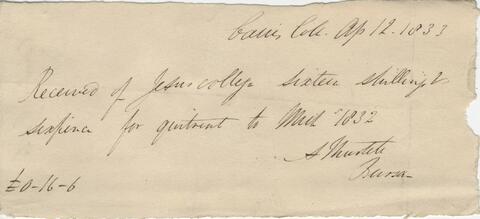 Caius Coll. Ap 12. 1833
Received of Jesus college sixteen shillings &
sixpence for quitrent to Mich 1832
Bursar
£0-16-6